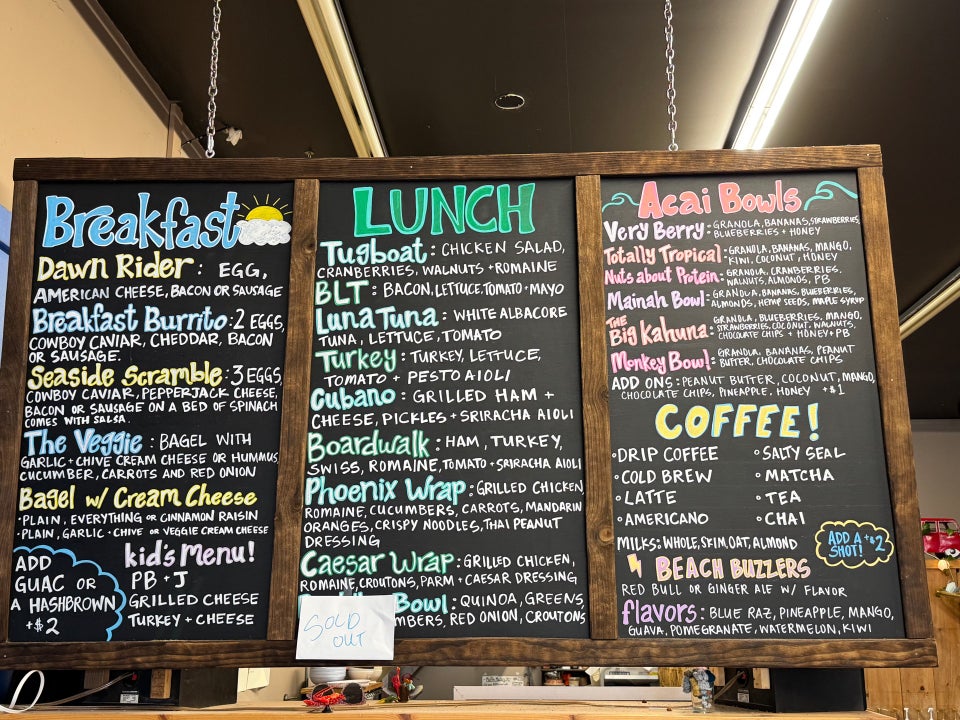 Breakfast
Dawn Rider: EGG,
AMERICAN CHEESE, BACON OR SAUSAGE
Breakfast Burrito: 2 EGGS,
COWBOY CAVIAR, CHEDDAR, BACON
OR SAUSAGE.
Seaside Scramble: 3 EGGS,
COWBOY CAVIAR, PEPPERJACK CHEESE,
BACON OR SAUSAGE ON A BED OF SPINACH
COMES WITH SALSA.
The Veggie: BAGEL WITH
GARLIC + CHIVE CREAM CHEESE OR HUMMUS,
CUCUMBER, CARROTS AND RED ONION
Bagel w/ Cream Cheese
• PLAIN, EVERYTHING OR CINNAMON RAISIN
• PLAIN, GARLIC + CHIVE OR VEGGIE CREAM CHEESE
ADD
GUAC OR
A HASHBROWN
+$2
kid's Menu!
PB + J
GRILLED CHEESE
TURKEY + CHEESE
LUNCH
Tugboat: CHICKEN SALAD,
CRANBERRIES, WALNUTS + ROMAINE
BLT: BACON, LETTUCE, TOMATO + MAYO
Luna Tuna: WHITE ALBACORE
TUNA, LETTUCE, TOMATO
Turkey: TURKEY, LETTUCE,
TOMATO + PESTO AIOLI
Cubano: GRILLED HAM +
CHEESE, PICKLES + SRIRACHA AIOLI
Boardwalk: HAM, TURKEY,
SWISS, ROMAINE, TOMATO + SRIRACHA AIOLI
Phoenix Wrap: GRILLED CHICKEN,
ROMAINE, CUCUMBERS, CARROTS, MANDARIN
ORANGES, CRISPY NOODLES, THAI PEANUT
DRESSING
Caesar Wrap: GRILLED CHICKEN,
ROMAINE, CROUTONS, PARM + CAESAR DRESSING
Bowl: QUINOA, GREENS,
RED ONION, CROUTONS
SOLD
OUT
Acai Bowls
Very Berry: GRANOLA, BANANAS, STRAWBERRIES,
BLUEBERRIES + HONEY
Totally Tropical: GRANOLA, BANANAS, MANGO,
KIWI, COCONUT, HONEY
Nuts about Protein: GRANOLA, CRANBERRIES,
WALNUTS, ALMONDS, PB
Mainah Bowl: GRANOLA, BANANAS, BLUEBERRIES,
ALMONDS, HEMP SEEDS, MAPLE SYRUP
THE Big Kahuna: GRANOLA, BLUEBERRIES, MANGO,
STRAWBERRIES, COCONUT, WALNUTS,
CHOCOLATE CHIPS + HONEY + PB
Monkey Bowl: GRANOLA, BANANAS, PEANUT
BUTTER, CHOCOLATE CHIPS
ADD ONS: PEANUT BUTTER, COCONUT, MANGO,
CHOCOLATE CHIPS, PINEAPPLE, HONEY +$1
COFFEE!
• DRIP COFFEE
• COLD BREW
• LATTE
• AMERICANO
• SALTY SEAL
• MATCHA
• TEA
• CHAI
MILKS: WHOLE, SKIM, OAT, ALMOND
ADD A +$2
SHOT!
BEACH BUZZERS
RED BULL OR GINGER ALE W/ FLAVOR
flavors: BLUE RAZ, PINEAPPLE, MANGO,
GUAVA, POMEGRANATE, WATERMELON, KIWI